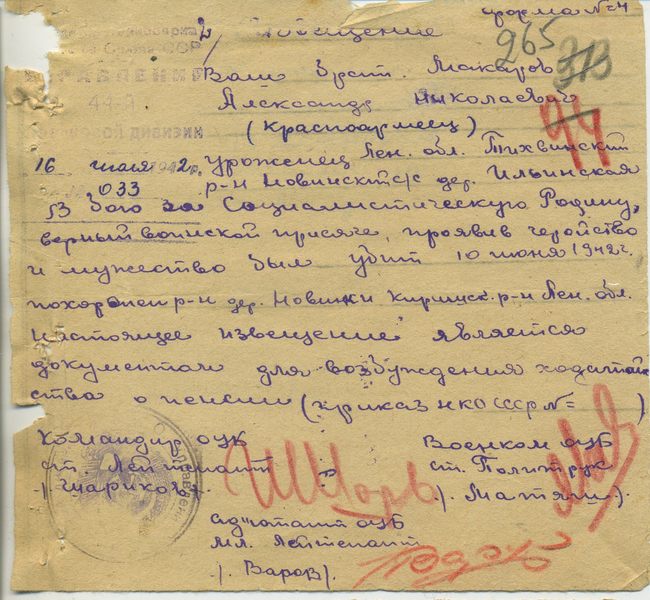 форма № 4
Извещение
265
313
Ваш брат. Макаров
УПРАВЛЕНИЕ
44-й
Александр Николаевич
дивизии
(красноармеец)
44
16 июля 1942 г. уроженец Лен. обл. Тихвинский
033 р-н Новинский с/с дер. Ильинская
В бою за Социалистическую Родину,
верный воинской присяге, проявив геройство
и мужество был убит 10 июня 1942 г.
похоронен р-н дер. Новинки Киришск. р-н Лен. обл.
Настоящее извещение является
документом для возбуждения ходатай
ства о пенсии (приказ НКО СССР №= )
Командир ОУБ Военком ОУБ
ст. Лейтенант ст. Политрук
/. Шариков/. /. Матяш/.
адютант ОУБ
мл. Лейтенант
/. Варов/.